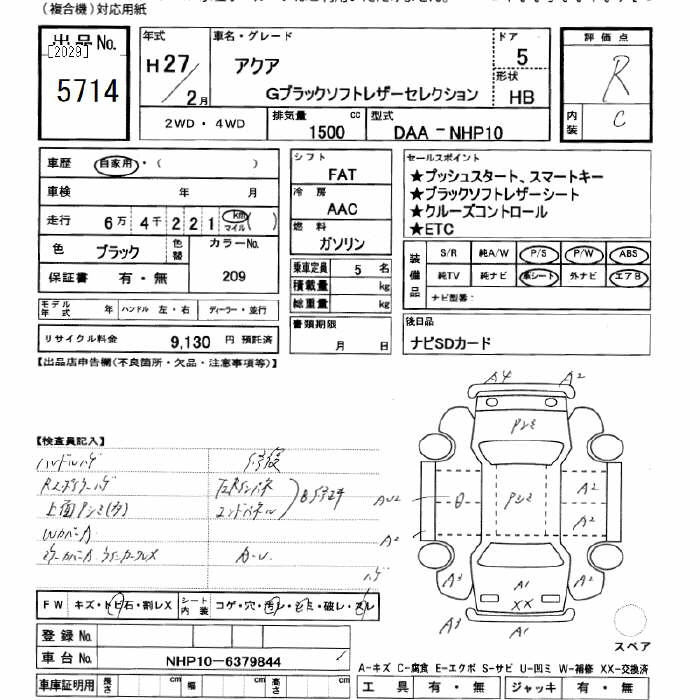 (複合機)対応用紙
出品No. [2029] 5714
年式 H27/2月
車名・グレード アクア Gブラックソフトレザーセレクション
ドア 5
形状 HB
評価点 R
内装 C
2WD・4WD
排気量 1500 cc
型式 DAA-NHP10
車歴 自家用・( )
車検 年 月
走行 6万4千221 km マイル ( )
色 ブラック 色替 カラーNo. 209
保証書 有・無
モデル年式 年 ハンドル 左・右 ディーラー・並行
リサイクル料金 9,130 円 預託済
シフト FAT
冷房 AAC
燃料 ガソリン
乗車定員 5 名
積載量 kg
総重量 kg
書類期限 月 日
セールスポイント
★プッシュスタート、スマートキー
★ブラックソフトレザーシート
★クルーズコントロール
★ETC
装備品 S/R 純A/W P/S P/W ABS
純TV 純ナビ 革シート 外ナビ エアB
ナビ型番:
後日品
ナビSDカード
【出品店申告欄(不良箇所・欠品・注意事項等)】
【検査員記入】
ハンドルハゲ 修復
上面Pシミ(カ) エンドパネル
WカバーA
A-U
ハゲ
A4 A2
Pシミ
AU2 U Pシミ A2
A2 A2
A3 A1 A2
XX
A3 A1
スペア
FW キズ・トビ石・割レX シート内装 コゲ・穴・汚レ・シミ・破レ・スレ
登録No.
車台No. NHP10-6379844
車庫証明用 長さ cm 幅 cm 高さ cm
A-キズ C-腐食 E-エクボ S-サビ U-凹ミ W-補修 XX-交換済
工具 有・無 ジャッキ 有・無